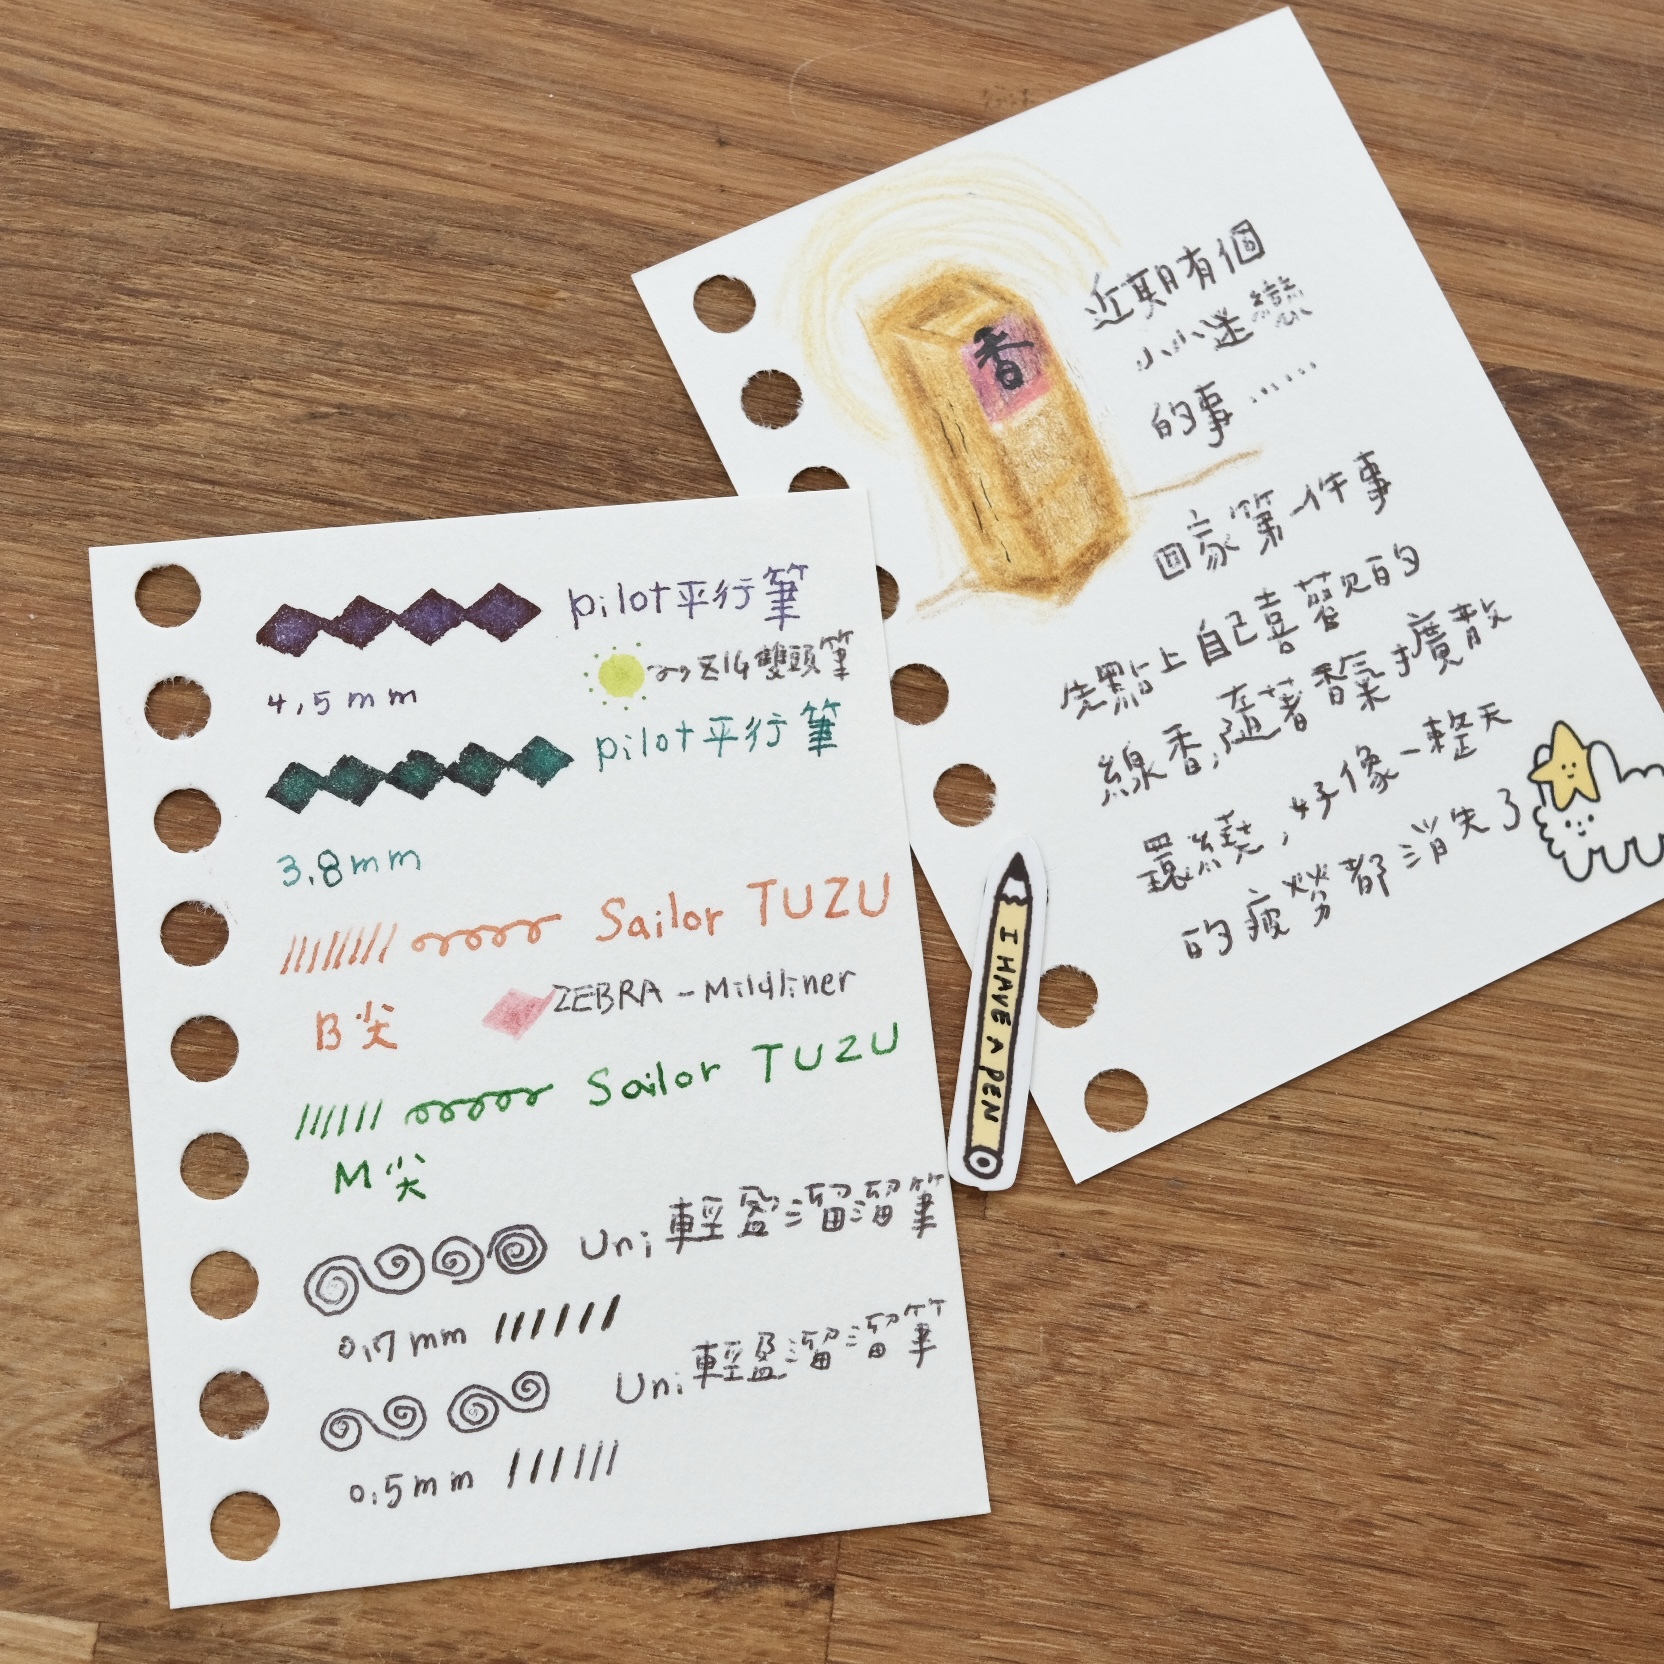 pilot平行筆
雙頭筆
4.5mm
pilot平行筆
3.8mm
Sailor TUZU
B尖
ZEBRA-Mildliner
Sailor TUZU
M尖
Uni輕盈溜溜筆
0.7mm
Uni輕盈溜溜筆
0.5mm
香
近期有個
小小迷戀
的事……
回家第一件事
先點上自己喜歡的
線香,隨著香氣擴散
環繞,好像一整天
的疲勞都消失了
I HAVE A PEN